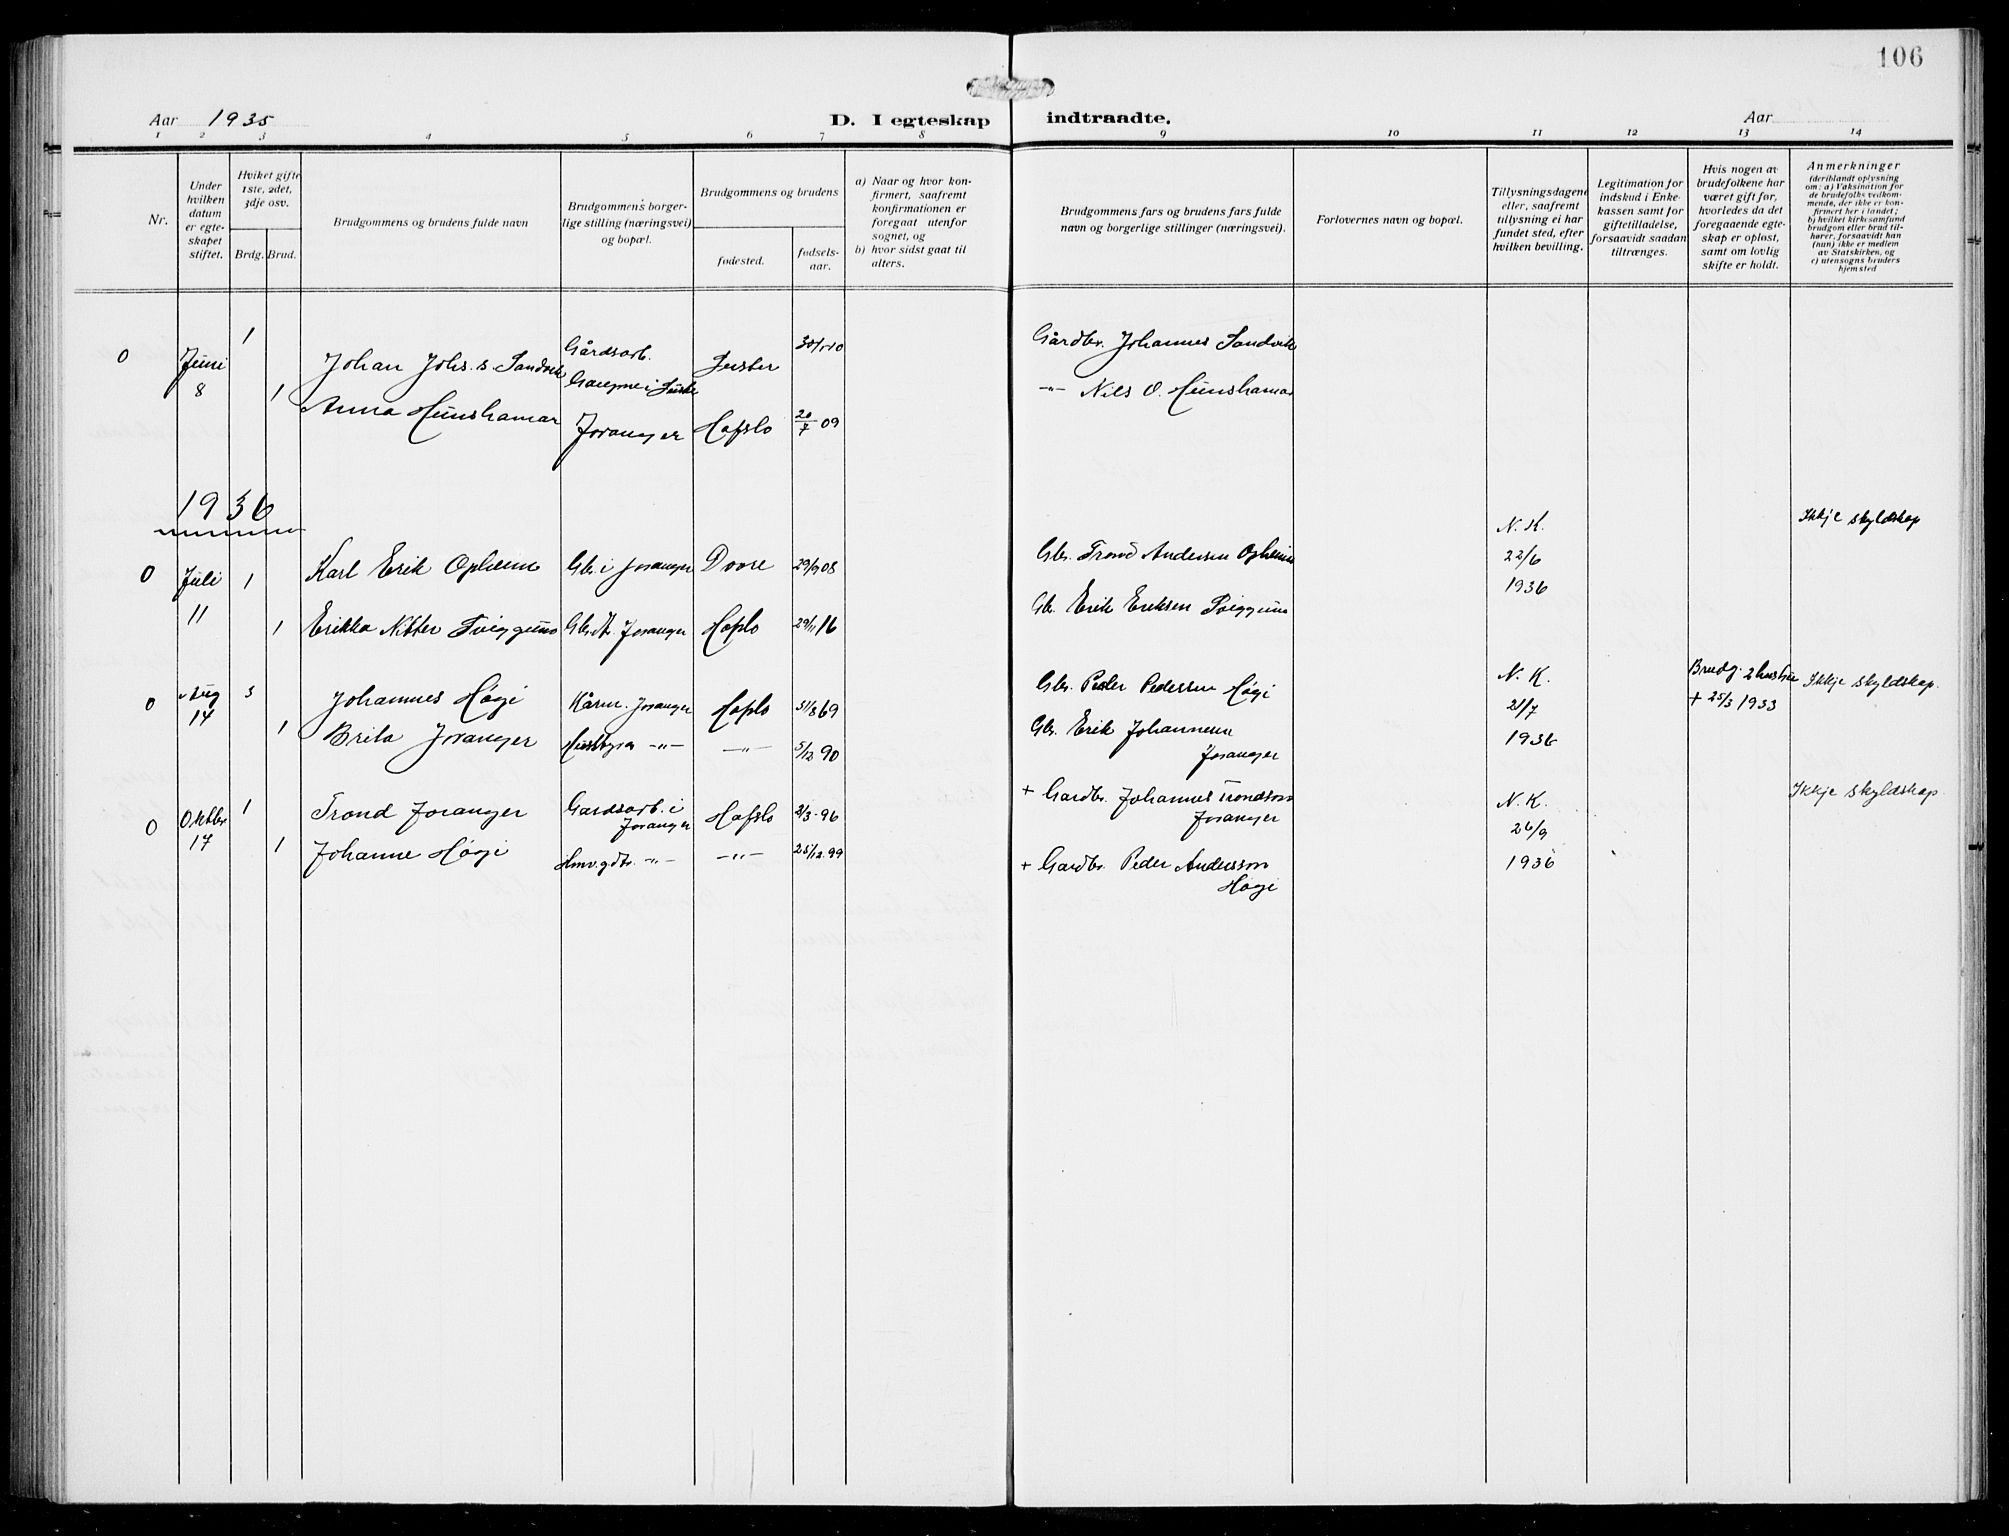 106
Aar 1935
D. I egteskap indtraadte.
Aar
1 2 3 4 5 6 7 8 9 10 11 12 13 14
Nr.
Under
hvilken
datum
er egte-
skapet
stiftet.
Hviket gifte
1ste, 2det,
3dje osv.
Brdg. Brud.
Brudgommens og brudens fulde navn
Brudgommens borger-
lige stilling (næringsvei)
og bopæl.
Brudgommens og brudens
fødested.
fødsels-
aar.
a) Naar og hvor kon-
firmert, saafremt
konfirmationen er
foregaat utenfor
sognet, og
b) hvor sidst gaat til
alters.
Brudgommens fars og brudens fars fulde
navn og borgerlige stillinger (næringsvei).
Forlovernes navn og bopæl.
Tillysningsdagene
eller, saafremt
tillysning ei har
fundet sted, efter
hvilken bevilling.
Legitimation for
indskud i Enke-
kassen samt for
giftetilladelse,
forsaavidt saadan
tiltrænges.
Hvis nogen av
brudefolkene har
været gift før,
hvorledes da det
foregaaende egte-
skap er opløst,
samt om lovlig
skifte er holdt.
Anmerkninger
(deriblandt oplysning
om: a) Vaksination for
de brudefolks vedkom-
mende, der ikke er kon-
firmert her i landet;
b) hvilket kirkesamfund
brudgom eller brud til-
hører, forsaavidt han
(hun) ikke er medlem
av Statskirken, og
c) utensogns bruders
hjemsted
0 Juni 1 Johan Johs. s. Sandvik Gårdsarb. Luster Gårdbr. Johannes Sandvik
8 1 Anna Hunshamar Joranger Hafslo 20/7 09 -"- Nils O. Hunshamar
1936
0 Juli 1 Karl Erik Opheim Gbr. i Joranger Dovre 29/9 08 Gbr. Trond Andersen Opheim N. K. 22/6 1936 Ikkje skyldskap
11 1 Erikka Joranger Haflo 29/11 16 Gbr. Erik Eriksen
0 Aug 3 Johannes Høgi Kårm. Joranger Haflo 31/8 69 Gbr. Peder Pedersen Høgi N. K. 21/7 1936 Brudg. 2 hustru + 25/3 1933 Ikkje skyldskap.
14 1 Brita Joranger -"- -"- 5/12 90 Gbr. Erik Johannesen
Joranger
0 Oktbr 1 Trond Joranger Gardsarb. i Joranger Hafslo 2/3-96 + Gardbr. Johannes Trondson Joranger N. K. 26/9 1936 Ikkje skyldskap.
17 1 Johanne Høgi -"- -"- 25/12 99 + Gardbr. Peder Andersson
Høgi